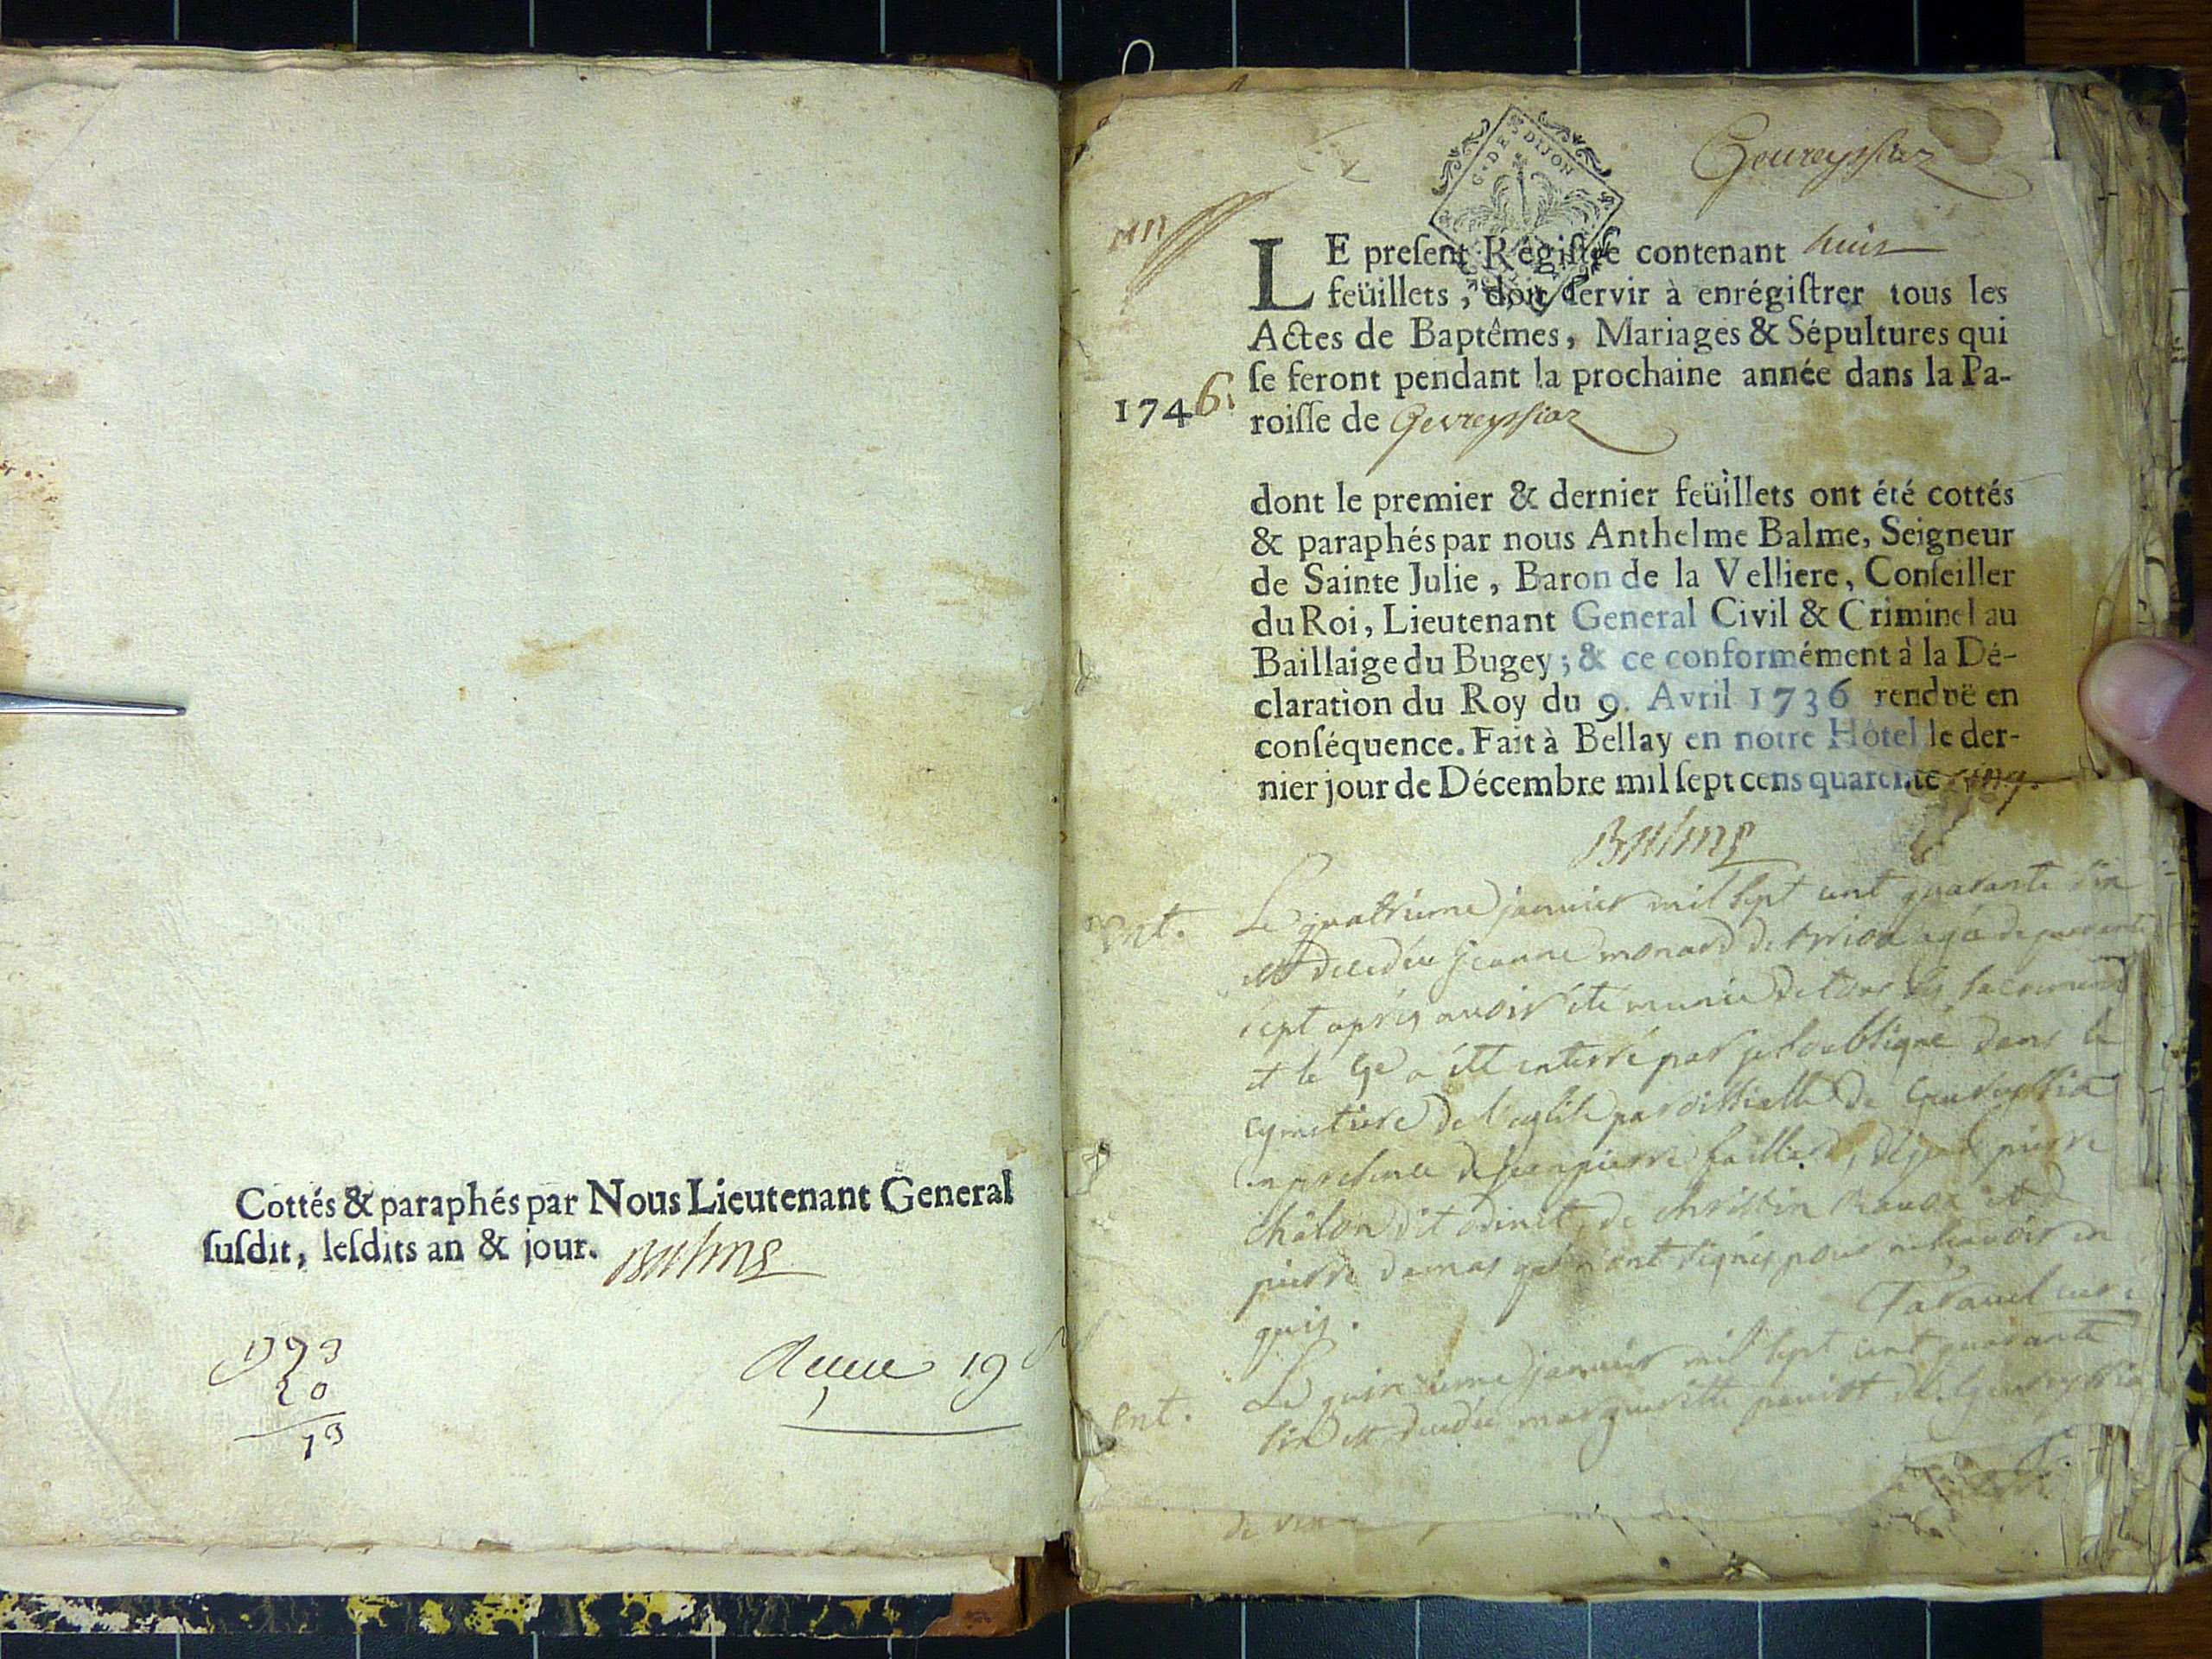 Cottés & paraphés par Nous Lieutenant General
ſuſdit, leſdits an & jour. Balme
1793
20
13
19
G. DE DIJON
Gevreyssiaz
LE preſent Régiſtre contenant huit
feüillets, doit ſervir à enrégiſtrer tous les
Actes de Baptêmes, Mariages & Sépultures qui
ſe feront pendant la prochaine année dans la Pa-
1746.
roiſſe de Gevreyssiaz
dont le premier & dernier feüillets ont été cottés
& paraphés par nous Anthelme Balme, Seigneur
de Sainte Julie, Baron de la Velliere, Conſeiller
du Roi, Lieutenant General Civil & Criminel au
Baillaige du Bugey; & ce conformément à la Dé-
claration du Roy du 9. Avril 1736 renduë en
conſéquence. Fait à Bellay en notre Hôtel le der-
nier jour de Décembre mil ſept cens quarente cinq.
Balme
Ent.
Le quatrieme janvier mil sept cent quarante six
est decedée jeanne monard de agée de quarante
sept après avoir ete munie de tous les sacrements
et le 5e a été enterré par je soubsigné dans le
cymetiere de l'eglise paroissialle de
en presence de jean pierre de jean pierre
châlon dit odinet, de christin et de
pierre damas qui n'ont signés pour ne sçavoir en
quis.
curé
Ent.
Le quinzieme janvier mil sept cent quarante
six est decedée margueritte de